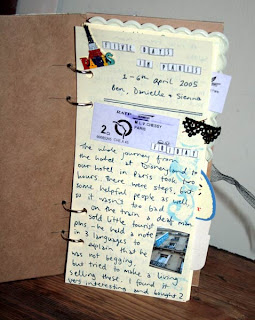 PARIS
FIVE DAYS
IN PARIS
1-6th april 2005
Ben, Danielle & Sienna
PARIS
2
FRIDAY
The whole journey from
the hotel at Disneyland to
our hotel in Paris took two
hours. There were steps, but
some helpful people as well
so it wasn't too bad.
on the train a deaf man
sold little tourist
pins - he held a note
in 3 languages to
explain that he
was not begging,
but tried to make a living
selling these. I found it
very interesting and bought 2